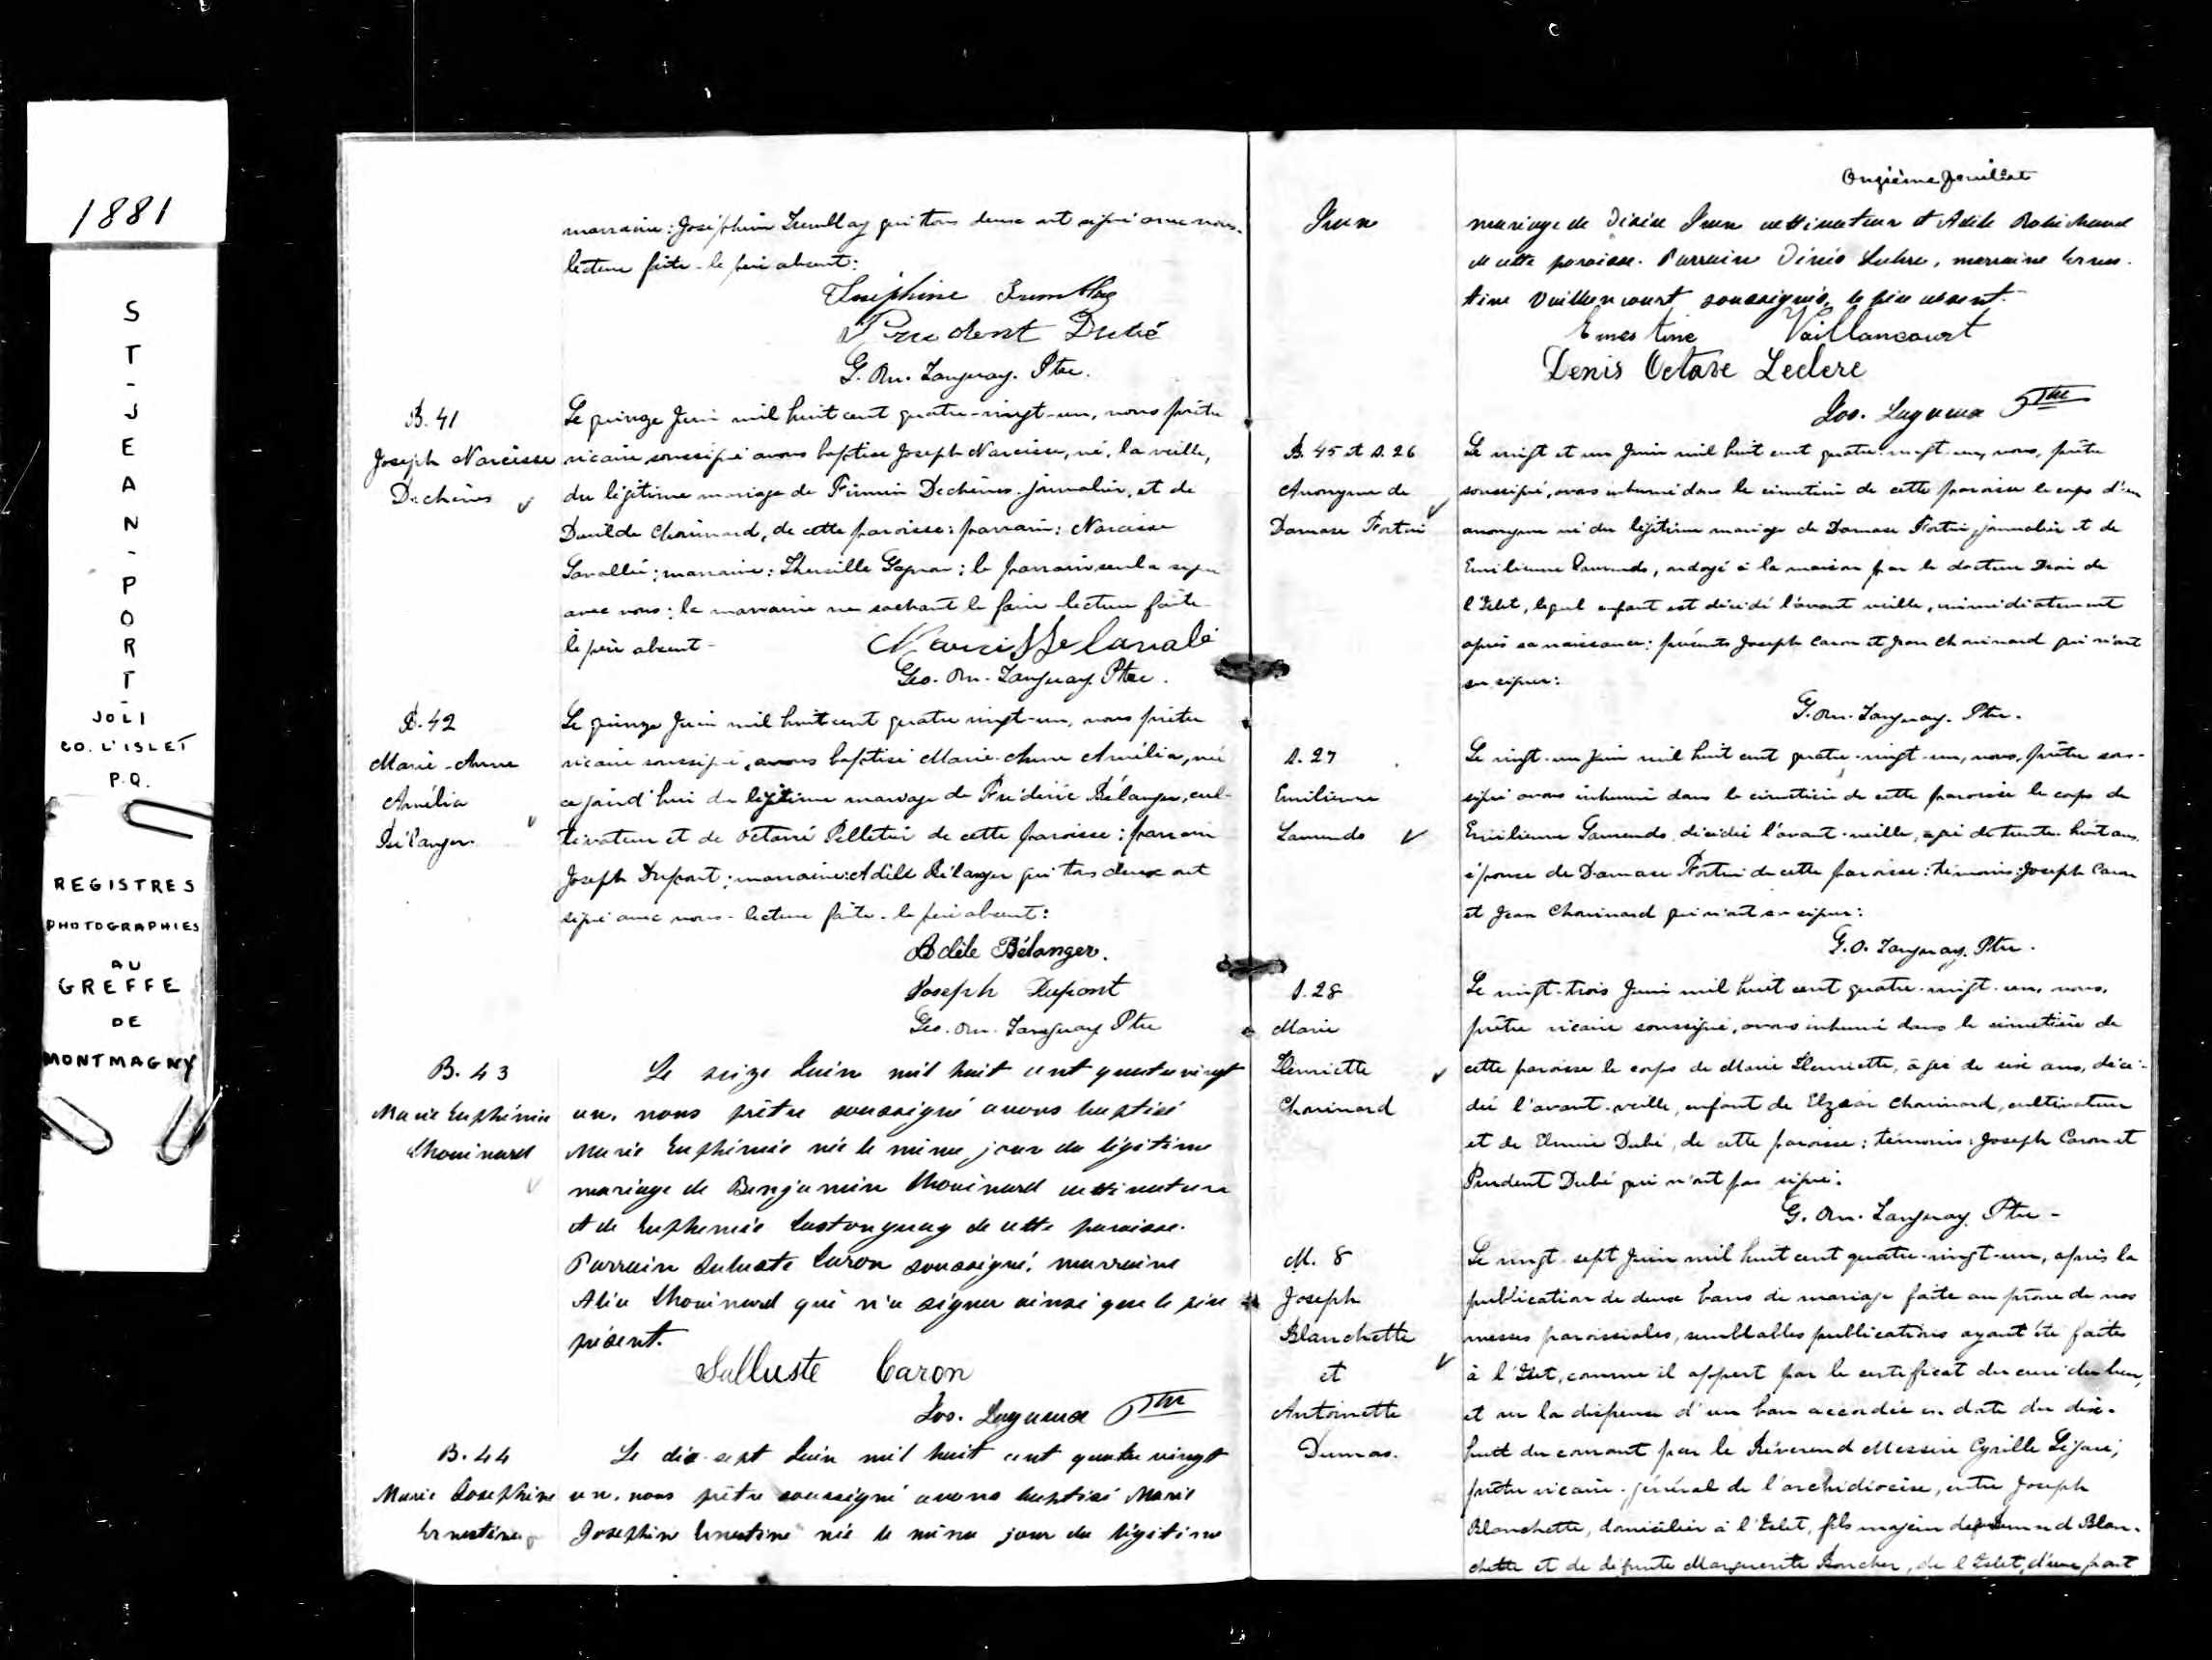 1881
ST-JEAN-PORT-
JOLI
CO. L'ISLET
P.Q.
REGISTRES
PHOTOGRAPHIES
AU
GREFFE
DE
MONTMAGNY
marraine: Joséphine Tremblay qui tous deux ont signé avec nous.
lecture faite - le père absent:
Joséphine Tremblay
Prudent Dubé
G. On. Tanguay. Ptre.
B. 41
Joseph Narcisse
Dechênes
Le quinze Juin mil huit cent quatre-vingt-un, nous prêtre
vicaire soussigné avons baptisé Joseph Narcisse, né, la veille,
du légitime mariage de Firmin Dechênes, journalier, et de
Chouinard, de cette paroisse: parrain: Narcisse
Lavallée; marraine: Gagnon; le parrain seul a signé
avec nous: la marraine ne sachant le faire - lecture faite
le père absent -
Narcisse Lavalé
Geo. On. Tanguay. Ptre.
B. 42
Marie-Anne
Amélia
Bélanger.
Le quinze Juin mil huit cent quatre vingt-un, nous prêtre
vicaire soussigné, avons baptisé Marie-Anne Amélia, née
ce jourd'hui du légitime mariage de Fréderic Bélanger, cul-
tivateur et de Octavie Pelletier de cette paroisse: parrain
Joseph Dupont; marraine: Adèle Bélanger qui tous deux ont
signé avec nous - lecture faite - le père absent:
Adèle Bélanger.
Joseph Dupont
Geo. On. Tanguay Ptre
B. 43
Marie Euphémie
Chouinard
Le seize Juin mil huit cent quatre vingt
un, nous prêtre soussigné avons baptisé
Marie Euphémie née le même jour du légitime
mariage de Benjamin Chouinard cultivateur
et de Euphemie Castonguay de cette paroisse.
Parrain Saluste Caron soussigné, marraine
Chouinard qui n'a signer ainsi que le père
présent.
Salluste Caron
Jos. Lagueux Ptre
B. 44
Marie Josephine
Ernestine
Le dix-sept Juin mil huit cent quatre vingt
un, nous prêtre soussigné avons baptisé Marie
Josephine Ernestine née le même jour du légitime
Onzième feuillet
mariage de cultivateur et Adèle Robichaud
de cette paroisse. Parrain Dénis Leclerc, marraine Ernes-
tine Vaillancourt soussignés, le père absent.
Ernestine Vaillancourt
Denis Octave Leclerc
Jos. Lagueux Ptre
B. 45 et S. 26
Anonyme de
Damase Fortin
Le vingt et un Juin mil huit cent quatre-vingt-un, nous, prêtre
soussigné, avons inhumé dans le cimetière de cette paroisse le corps d'un
anonyme né du légitime mariage de Damase Fortin, journalier et de
Emilienne, ondoyé à la maison par le docteur de
l'Islet, lequel enfant est décédé l'avant veille, immédiatement
après sa naissance: présents Joseph Caron et Jean Chouinard qui n'ont
su signer:
G. On. Tanguay. Ptre.
S. 27
Emilienne
Le vingt-un Juin mil huit cent quatre-vingt-un, nous, prêtre sous-
signé avons inhumé dans le cimetière de cette paroisse le corps de
Emilienne décédée l'avant-veille, agée de trente-huit ans,
épouse de Damase Fortin de cette paroisse: témoins: Joseph Caron
et Jean Chouinard qui n'ont su signer:
G. O. Tanguay. Ptre.
S. 28
Marie
Henriette
Chouinard
Le vingt-trois Juin mil huit cent quatre-vingt-un, nous,
prêtre vicaire soussigné, avons inhumé dans le cimetière de
cette paroisse le corps de Marie Henriette, âgée de six ans, décé-
dée l'avant-veille, enfant de Elzéar Chouinard, cultivateur
et de Elmire Dubé, de cette paroisse: témoins: Joseph Caron et
Prudent Dubé qui n'ont pas signé:
G. On. Tanguay. Ptre -
M. 8
Joseph
Blanchette
et
Antoinette
Dumas.
Le vingt-sept Juin mil huit cent quatre-vingt-un, après la
publication de deux bans de mariage faite au prône de nos
messes paroissiales, semblables publications ayant été faites
à l'Islet, comme il appert par le certificat du curé du lieu,
et vu la dispense d'un ban accordée en date du dix-
huit du courant par le Révérend Messire Cyrille Légaré,
prêtre vicaire-général de l'archidiocèse, entre Joseph
Blanchette, domicilié à l'Islet, fils majeur de Blan-
chette et de défunte Marguerite, de l'Islet, d'une part